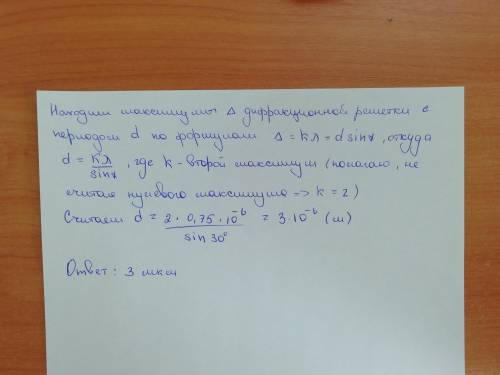 Находим максимумы Δ дифракционной решетки с
периодом d по формулам Δ = kλ = d sinγ, откуда
d = kλ / sinγ, где k - второй максимум (полагаю, не
считая нулевого максимума => k = 2)
Считаем d = 2 · 0,75 · 10⁻⁶ / sin 30° = 3 · 10⁻⁶ (м)
Ответ: 3 мкм